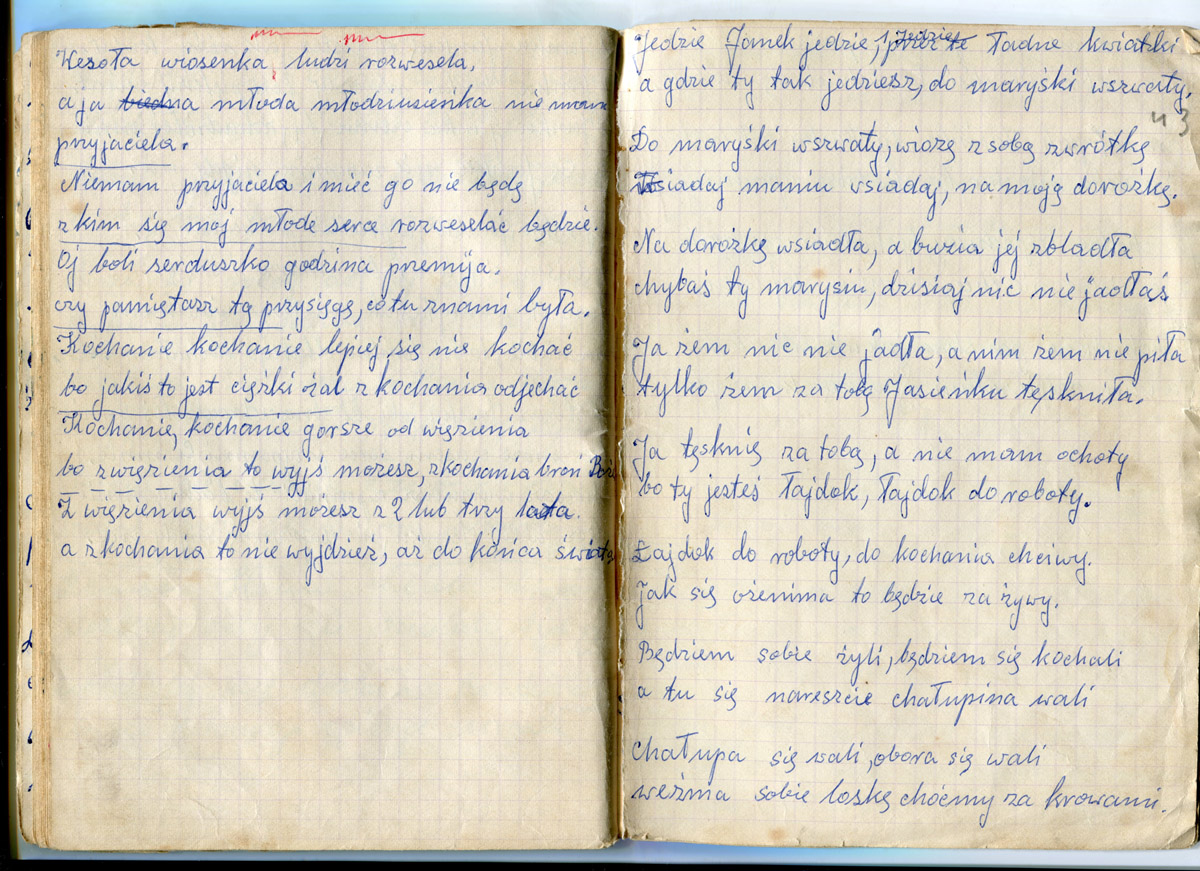 Wesoła wiosenka, ludzi rozwesela,
a ja biedna młoda młodziusieńka nie mam
przyjaciela.
Niemam przyjaciela i mieć go nie będę
z kim się mój młode serce rozweselać będzie.
Oj boli serduszko godzina premija.
czy pamiętasz tą przysięgę, co tu znami była.
Kochanie kochanie lepiej się nie kochać
bo jakiś to jest ciężki żal z kochania odjechać
Kochanie, kochanie gorsze od więzienia
bo zwięzienia to wyjś możesz, zkochania broń Boże
Z więzienia wyjś możesz z 2 lub trzy lata.
a zkochania to nie wyjdzież, aż do końca świata
Jedzie Janek jedzie, przez te jedzie ładne kwiatki
a gdzie ty tak jedziesz, do maryśki wszwaty.
43
Do maryśki wszwaty, wiozę z sobą zwrótkę
Wsiadaj maniu wsiadaj, na moją dorożkę.
Na dorożkę wsiadła, a buzia jej zbladła
chybaś ty marysiu, dzisiaj nic nie jadłaś
Ja żem nic nie jadła, a nim żem nie piła
tylko żem za tobą Jasieńku tęskniła.
Ja tęsknię za tobą, a nie mam ochoty
bo ty jesteś łajdok, łajdok do roboty.
Łajdok do roboty, do kochania chciwy.
Jak się ożenima to będzie za żywy.
Będziem sobie żyli, będziem się kochali
a tu się nareszcie chałupina wali
Chałupa się wali, obora się wali
weźma sobie loskę choćmy za krowami.